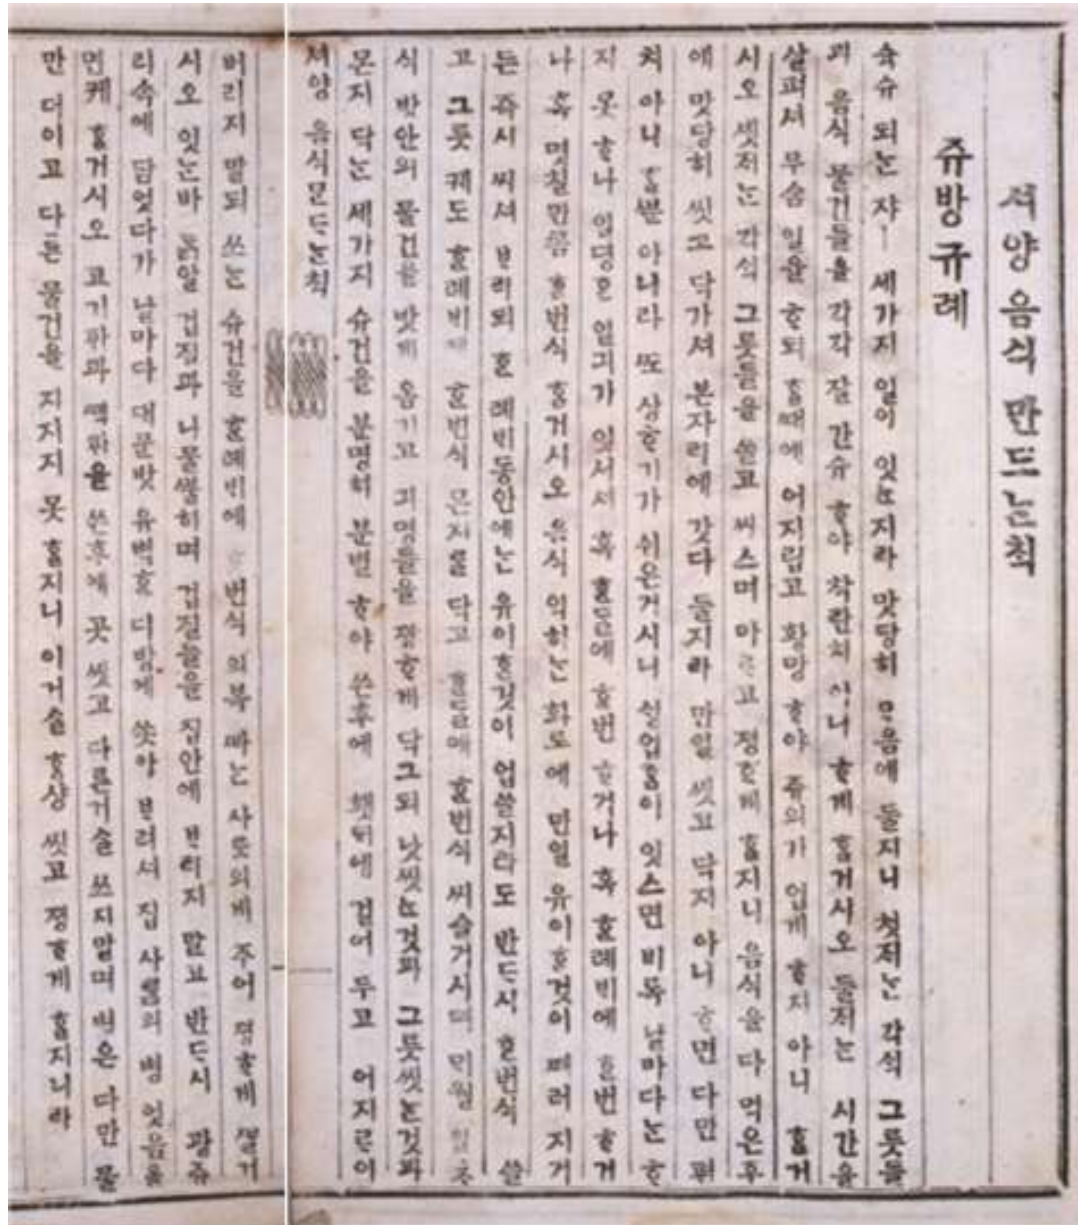 셔양음식 만드는칙
쥬방규례
슉슈 되는 쟈ㅣ 세가지 일이 잇는지라 맛당히 ᄆᆞ음에 둘지니 첫재는 각식 그릇들
과 음식 물건들을 각각 잘 간슈 ᄒᆞ야 착란치 아니 ᄒᆞ게 ᄒᆞᆯ거시오 둘재는 시간을
살펴셔 무ᄉᆞᆷ 일을 ᄒᆞ되 ᄒᆞᆯ때에 어지럽고 황망 ᄒᆞ야 쥬의가 업게 ᄒᆞ지 아니 ᄒᆞᆯ거
시오 셋재는 각식 그릇들을 쓸고 씨스며 마르고 졍ᄒᆞ게 ᄒᆞᆯ지니 음식을 다 먹은후
에 맛당히 씻고 닥가셔 본자리에 갓다 둘지라 만일 씻고 닥지 아니 ᄒᆞ면 다만 편
치 아니 ᄒᆞᆯᄲᅮᆫ 아니라 ᄯᅩ 상ᄒᆞ기가 쉬은거시니 셩업ᄒᆞᆷ이 잇스면 비록 날마다는 ᄒᆞ
지 못 ᄒᆞ나 일뎡ᄒᆞᆫ 일긔가 잇서셔 혹 ᄒᆞᆫᄃᆞᆯ에 ᄒᆞᆫ번 ᄒᆞ거나 혹 ᄒᆞᆫ례ᄇᆡ에 ᄒᆞᆫ번 ᄒᆞ거
나 혹 몃칠만콤 ᄒᆞᆫ번식 ᄒᆞᆯ거시오 음식 익히는 화도에 만일 유이ᄒᆞᆫ것이 ᄯᅥ러 지거
든 즉시 씨셔 ᄇᆞ리되 ᄒᆞᆫ 례ᄇᆡ동안에는 유이ᄒᆞᆫ것이 업슬지라도 반ᄃᆞ시 ᄒᆞᆫ번식 쓸
고 그릇 궤도 ᄒᆞᆫ례ᄇᆡ에 ᄒᆞᆫ번식 몬지를 닥고 ᄒᆞᆫᄃᆞᆯ에 ᄒᆞᆫ번식 씨슬거시며 ᄆᆡ월
식 방안의 물건을 밧게 옴기고 긔명들을 졍ᄒᆞ게 닥그되 낫씻는것과 그릇씻는것과
몬지 닥는 세가지 슈건을 분명히 분별 ᄒᆞ야 쓴후에 횃ᄃᆡ에 걸어 두고 어지로이
셔양 음식 ᄆᆞᆫ드는칙
버리지 말되 쓰는 슈건을 ᄒᆞᆫ례ᄇᆡ에 ᄒᆞᆫ번식 의복 ᄲᅡ는 사ᄅᆞᆷ의게 주어 졍ᄒᆞ게 ᄒᆞᆯ거
시오 잇는바 ᄃᆞᆰ알 겁집과 나물ᄲᅮᆯ히며 겁질들을 집안에 ᄇᆞ리지 말고 반ᄃᆞ시 광쥬
리속에 담엇다가 날마다 대문밧 유벽ᄒᆞᆫ 디방게 쏫아 ᄇᆞ려셔 집 사ᄅᆞᆷ의 병 잇음을
면케 ᄒᆞᆯ거시오 고기판과 ᄯᅥᆨ판을 쓴후에 곳 씻고 다른거슬 쓰지말며 번은 다만 물
만 더이고 다른 물건을 지지지 못 ᄒᆞᆯ지니 이거슬 ᄒᆞᆼ상 씻고 졍ᄒᆞ게 ᄒᆞᆯ지니라